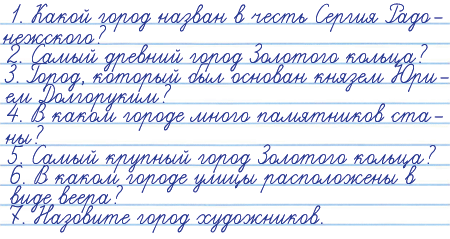 1. Какой город назван в честь Сергия Радо-
нежского?
2. Самый древний город Золотого кольца?
3. Город, который был основан князем Юри-
ем Долгоруким?
4. В каком городе много памятников ста-
ны?
5. Самый крупный город Золотого кольца?
6. В каком городе улицы расположены в
виде веера?
7. Назовите город художников.